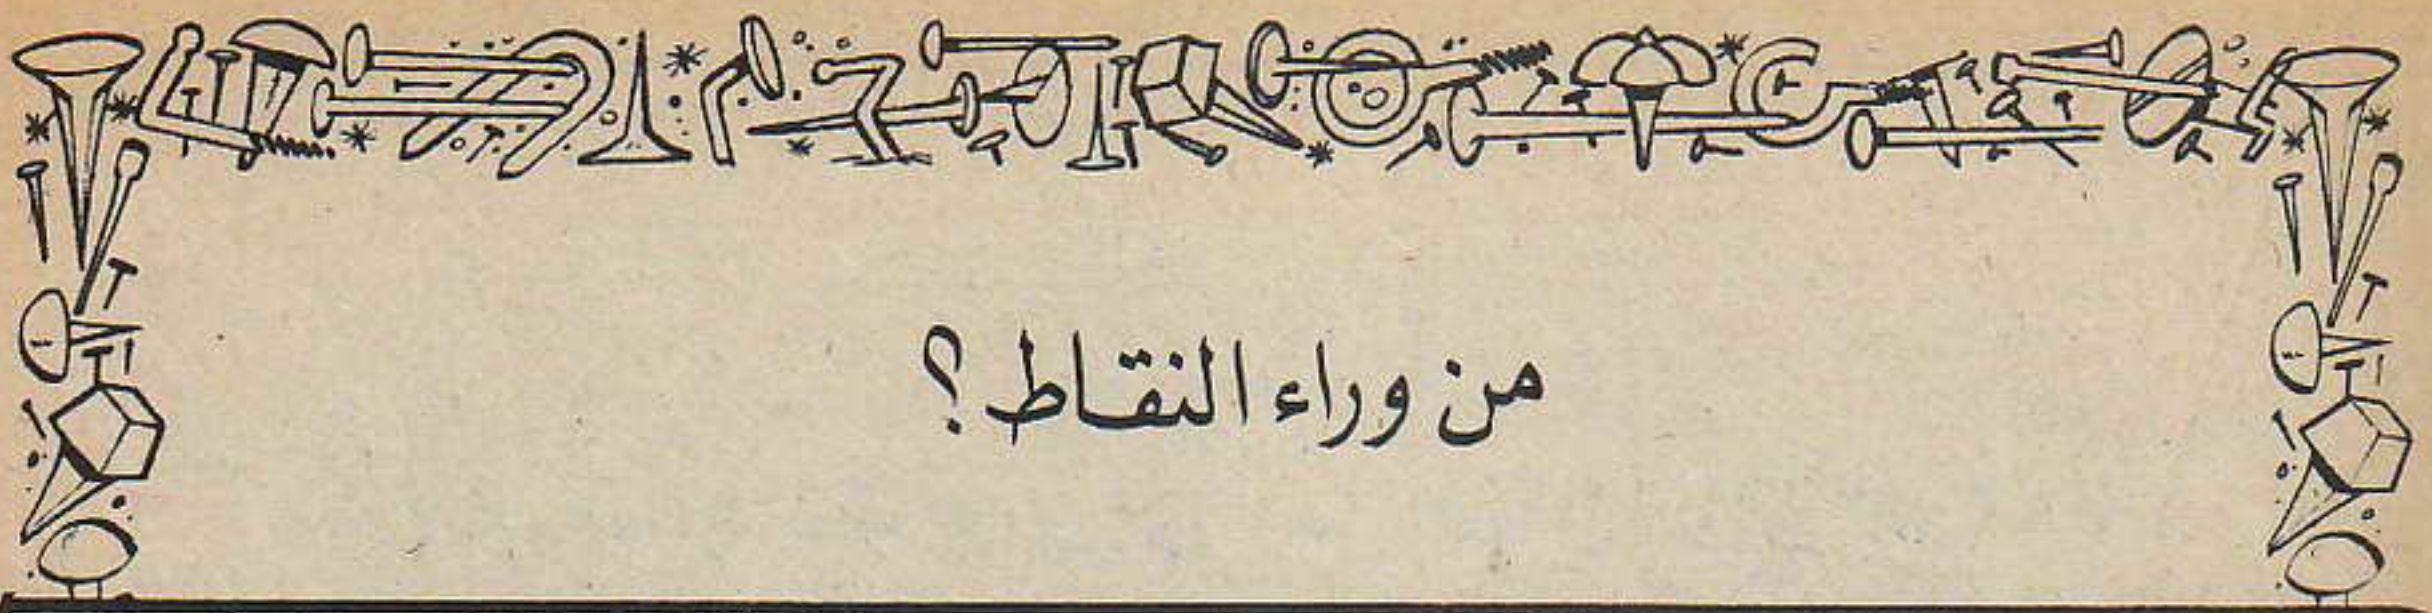 من وراء النقاط؟